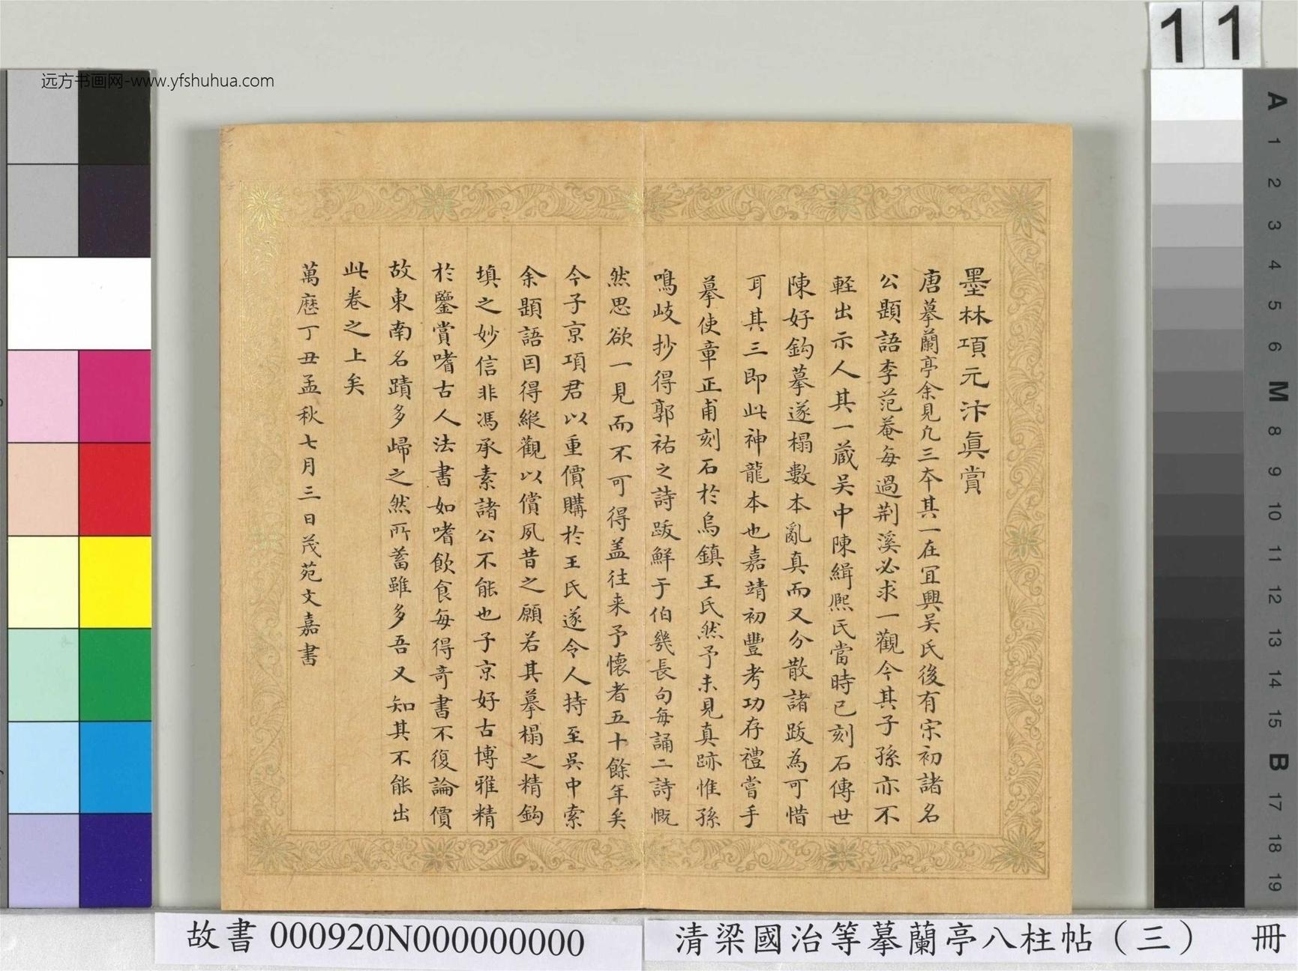 11
远方书画网-www.yfshuhua.com
墨林項元汴眞賞
唐摹蘭亭余見凢三本其一在宜興吴氏後有宋初諸名
公題語李范菴每過荆溪必求一觀今其子孫亦不
輕出示人其一藏吴中陳緝熈氏當時已刻石傳世
陳好鈎摹遂搨數本亂真而又分散諸跋為可惜
耳其三即此神龍本也嘉靖初豐考功存禮嘗手
摹使章正甫刻石於烏鎮王氏然予未見真跡惟孫
鳴岐抄得郭祐之詩跋鮮于伯幾長句每誦二詩慨
然思欲一見而不可得盖往来予懷者五十餘年矣
今子亰項君以重價購於王氏遂令人持至吴中索
余題語因得縱觀以償夙昔之願若其摹搨之精鈎
填之妙信非馮承素諸公不能也子京好古博雅精
於鑒賞嗜古人法書如嗜飲食每得竒書不復論價
故東南名蹟多歸之然所蓄雖多吾又知其不能出
此卷之上矣
萬厯丁丑孟秋七月三日茂苑文嘉書
A
1
2
3
4
5
6
M
8
9
10
11
12
13
14
15
B
17
18
19
故書 000920N000000000
清梁國治等摹蘭亭八柱帖（三） 冊